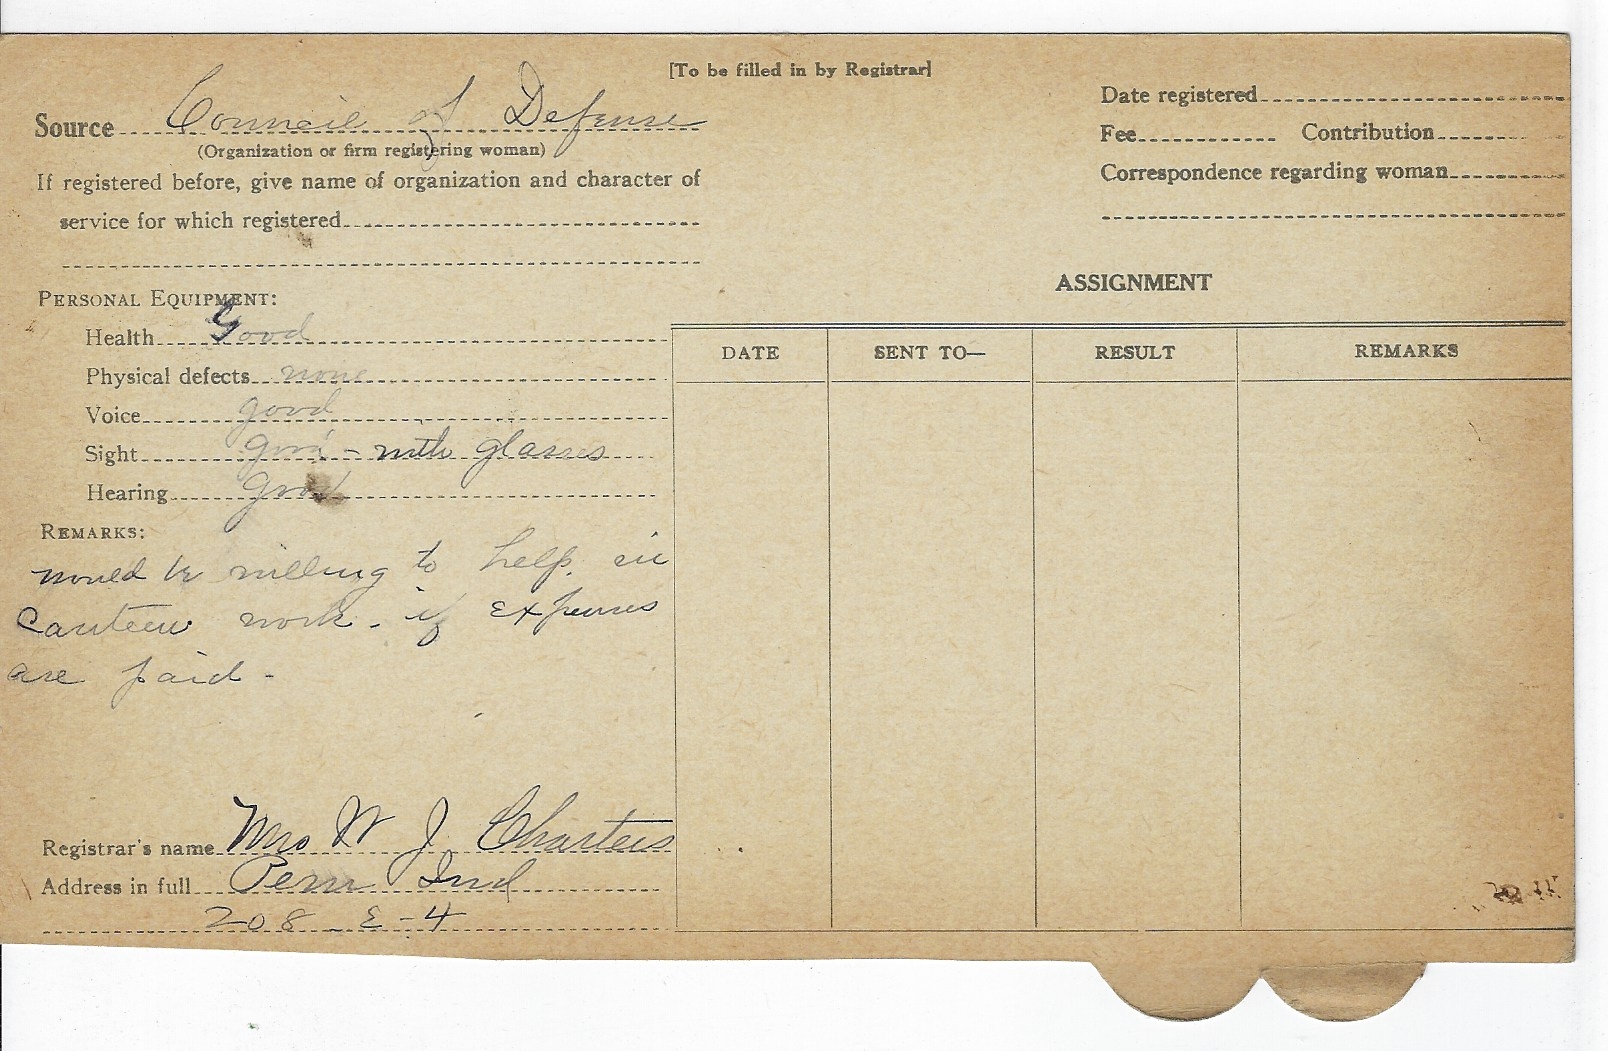 [To be filled in by Registrar]
Source Council of Defense
(Organization or firm registering woman)
If registered before, give name of organization and character of
service for which registered
Date registered
Fee Contribution
Correspondence regarding woman
PERSONAL EQUIPMENT:
Health Good
Physical defects none
Voice good
Sight good - with glasses
Hearing Good
REMARKS:
would be willing to help in
Canteen work - if expenses
are paid -
Registrar's name Mrs W J Charters
Address in full Peru Ind
208 E - 4
ASSIGNMENT
DATE SENT TO— RESULT REMARKS